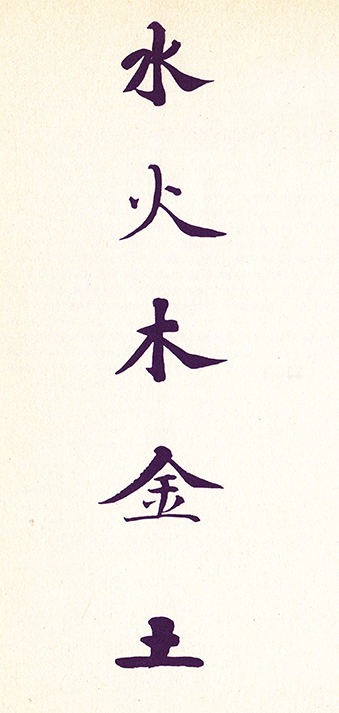 水
火
木
金
土